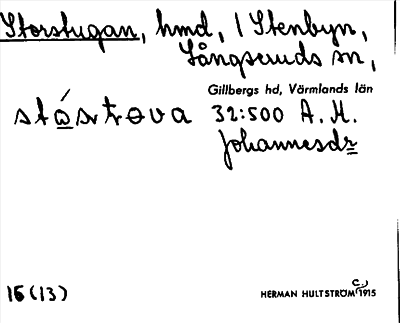 Storstugan, hmd, 1 Stenbyn,
Långseruds sn,
Gillbergs hd, Värmlands län
stásrtrova 32:500 A. M.
Johannesdr
16 (13) HERMAN HULTSTRÖM C. 1915